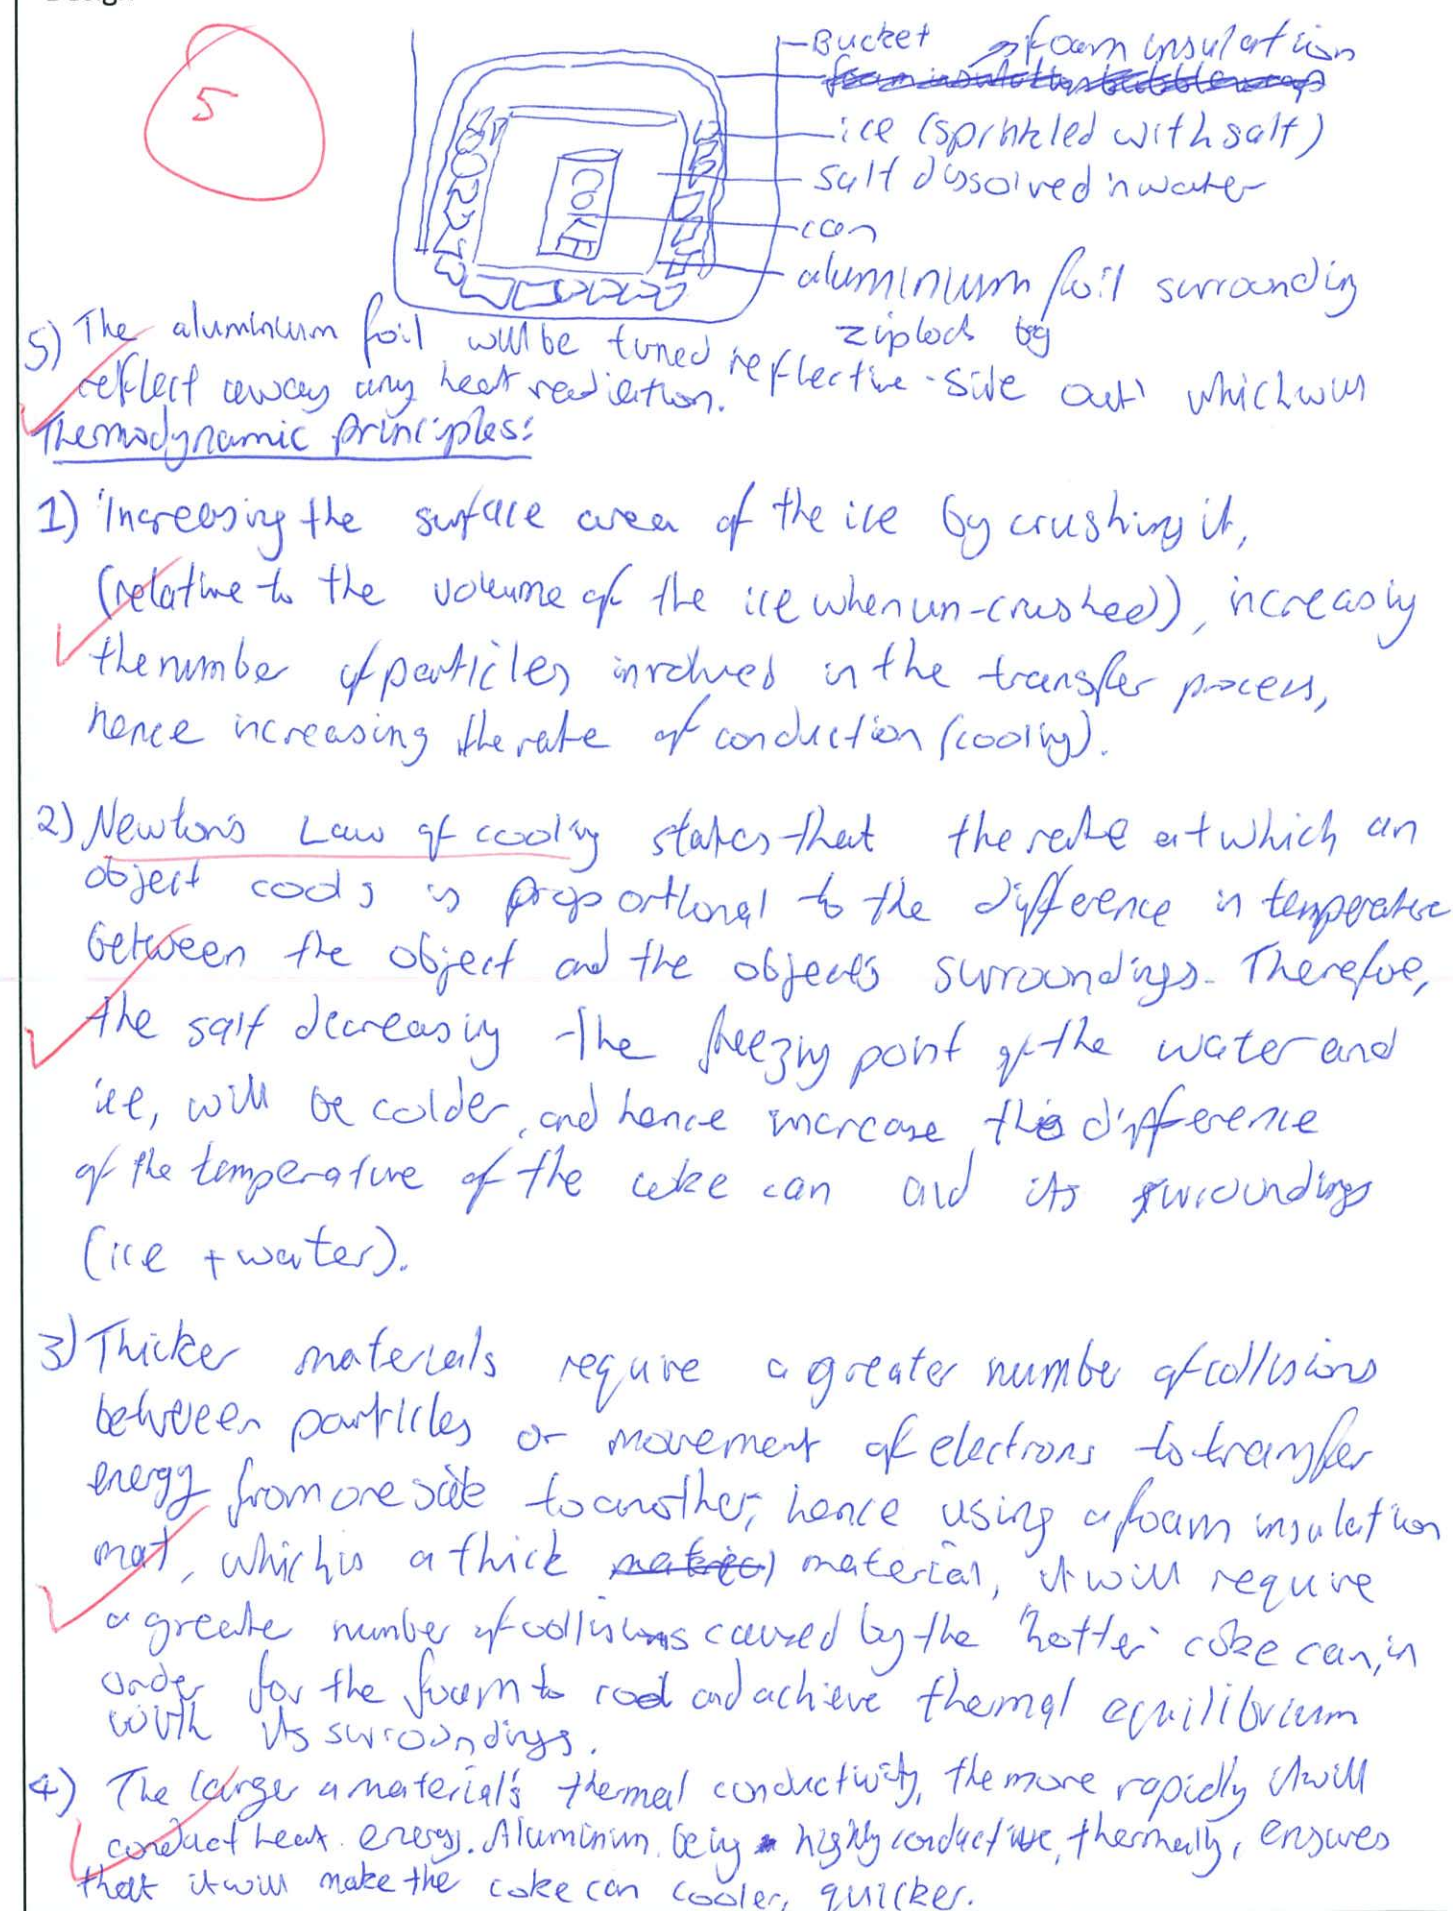 Design
5
Bucket
foam insulation
ice (sprinkled with salt)
salt dissolved in water
can
aluminium foil surrounding
ziploch bag
COKE
5) The aluminium foil will be turned reflective-side out' which will
reflect away any heat radiation.
Themodynamic principles:
1) Increasing the surface area of the ice by crushing it,
(relative to the volume of the ice when un-crushed)), increasing
the number of particles involved in the transfer process,
hence increasing the rate of conduction (cooling).
2) Newton's Law of cooling states that the rate at which an
object cools is proportional to the difference in temperature
between the object and the object's surroundings. Therefore,
the salt decreasing the freezing point of the water and
ice, will be colder, and hence increase the difference
of the temperature of the coke can and its surroundings
(ice + water).
3) Thicker materials require a greater number of collisions
between particles or movement of electrons to transfer
energy from one side to another, hence using a foam insulation
mat, which is a thick material, it will require
a greate number of collisions caused by the 'hotter' coke can, in
order for the foam to cool and achieve thermal equilibrium
with its surroundings.
4) The larger a material's thermal conductivity, the more rapidly it will
conduct heat energy. Aluminium being highly conductive, thermally, ensures
that it will make the coke can cooler, quicker.